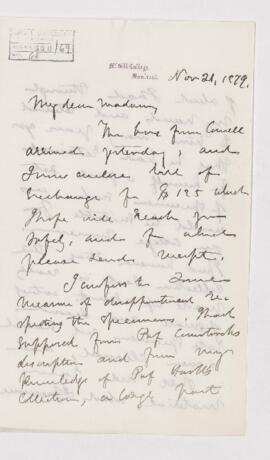 McGill College,
Montreal.
Nov 21, 1879.
My dear Madam,
The box from Cornell
arrived yesterday, and
I now enclose bill of
Exchange for $125 which
I hope will reach you
safely, and of which
please send receipt.
I confess to some
measure of disappointment re-
specting the specimens. I had
supposed from Prof Comstock's
description and from my
knowledge of Prof Hartt's
Collection, a large part